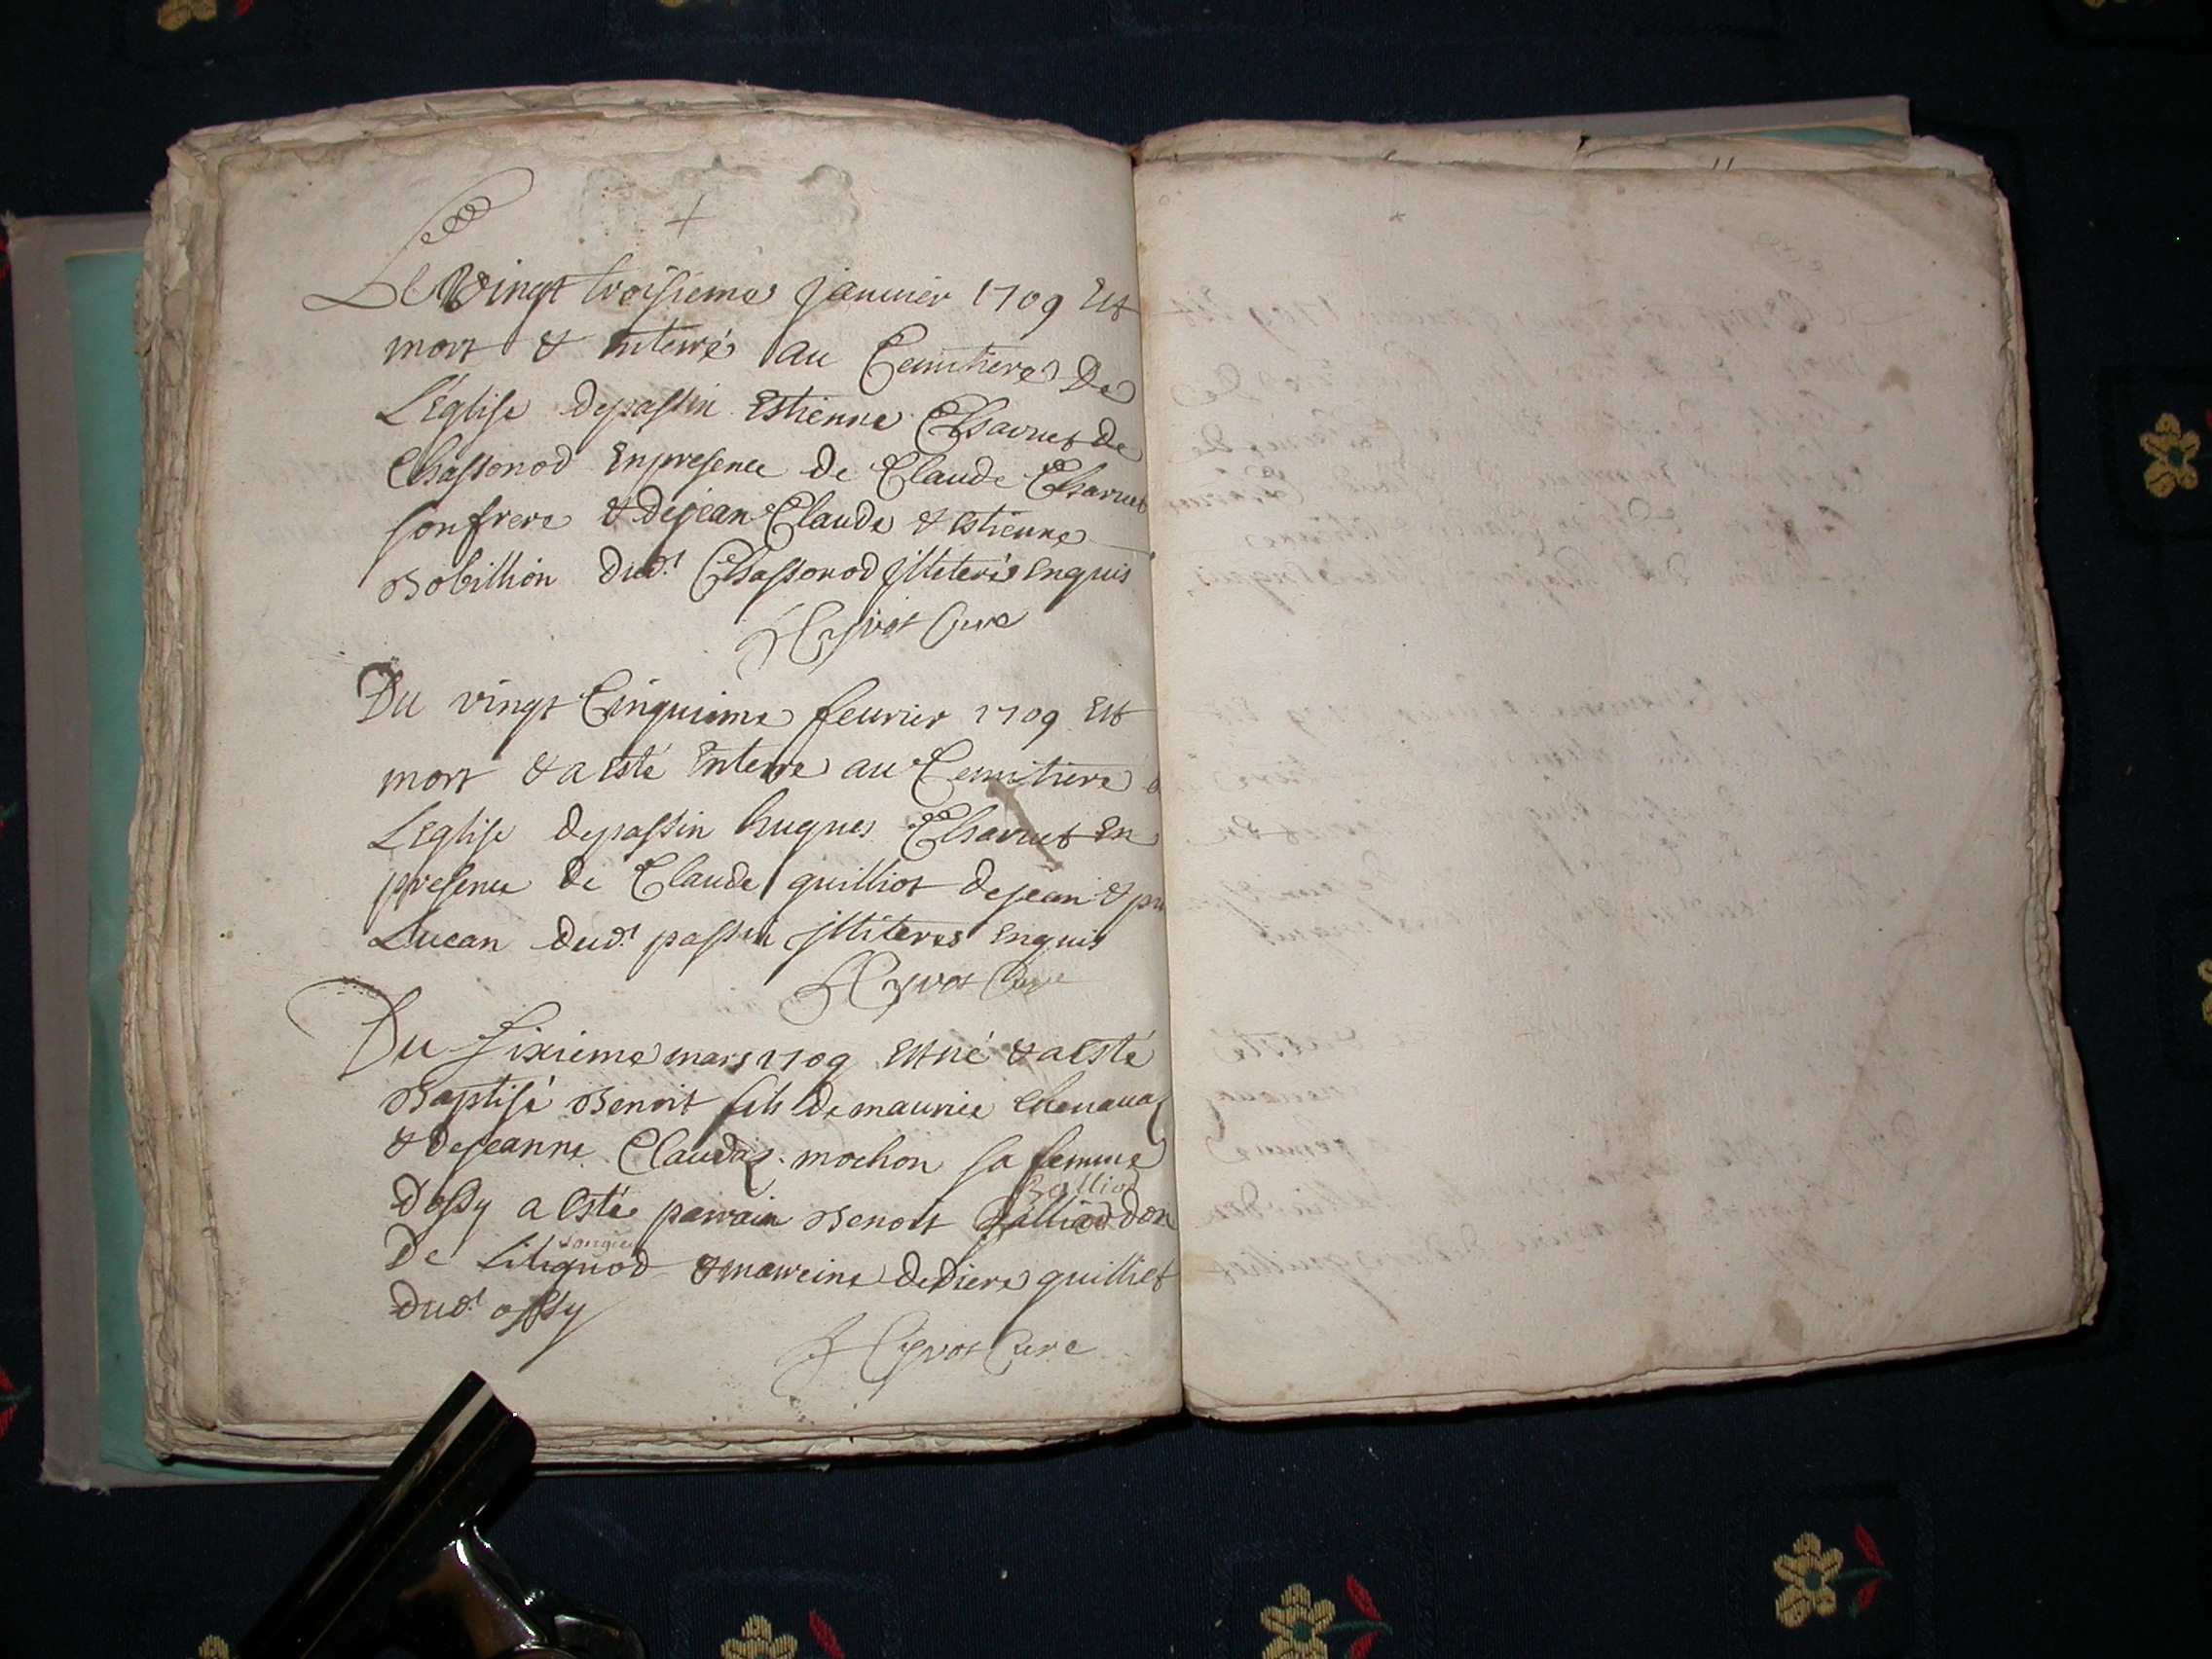 +
Le Vingt troisieme janvier 1709 Est
mort & enterré au Cemitiere De
L'Eglise depassin Estienne Charvet de
Chassonod Enpresence de Claude Charvet
son frere & dejean Claude & estienne
Bobillion dud.t Chassonod illiterés Enquis
Cyvot Cure
Du vingt Cinquieme feurier 1709 Est
mort & a esté Enterré au Cemitiere
L'Eglise depassin hugues Charvet En
presence de Claude guilliot dejean &
Lucan dud.t passin illiteres Enquis
Cyvot Cure
Du sixieme mars 1709 Est né & a esté
Baptisé Benoit fils de maurice Chenaua
& dejeanne Claudaz mochon sa femme
Dossy a Esté parrain Benoit
De Songieu & mareine deDiere guilliet
dud.t ossy
Cyvot Cure